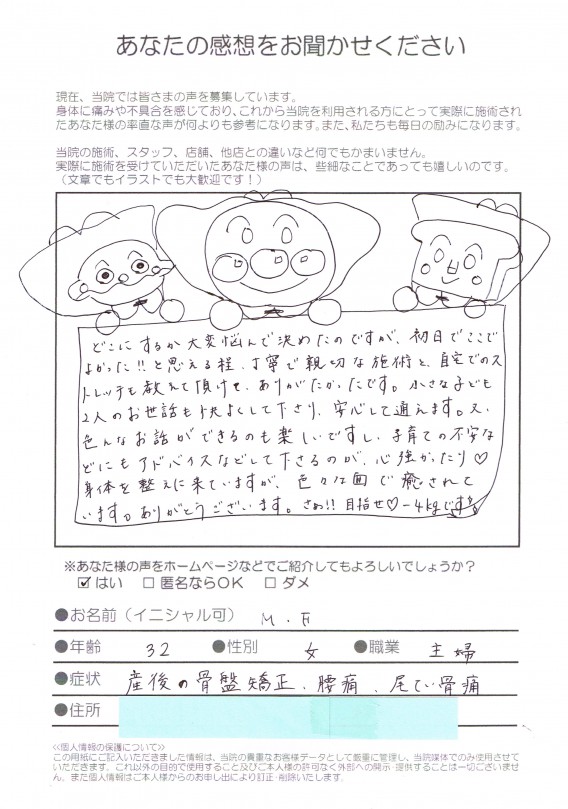 あなたの感想をお聞かせください
現在、当院では皆さまの声を募集しています。
身体に痛みや不具合を感じており、これから当院を利用される方にとって実際に施術され
たあなた様の率直な声が何よりも参考になります。また、私たちも毎日の励みになります。
当院の施術、スタッフ、店舗、他店との違いなど何でもかまいません。
実際に施術を受けていただいたあなた様の声は、些細なことであっても嬉しいのです。
（文章でもイラストでも大歓迎です！）
どこにするか大変悩んで決めたのですが、初日でここで
よかった!!と思える程、丁寧で親切な施術と、自宅でのス
トレッチも教えて頂けて、ありがたかったです。小さな子ども
2人のお世話も快よくして下さり、安心して通えます。又、
色んなお話ができるのも楽しいですし、子育ての不安な
どにもアドバイスなどして下さるのが、心強かったり♡
身体を整えに来ていますが、色々な面で癒されて
います。ありがとうございます。さぁ!! 目指せ♡-4kgです
※あなた様の声をホームページなどでご紹介してもよろしいでしょうか？
☑はい □匿名ならOK □ダメ
●お名前（イニシャル可） M.F
●年齢 32 ●性別 女 ●職業 主婦
●症状 産後の骨盤矯正、腰痛、尾てい骨痛
●住所
<<個人情報の保護について>>
この用紙にご記入いただきました情報は、当院の貴重なお客様データとして厳重に管理し、当院媒体でのみ使用させて
いただきます。これ以外の目的で使用すること及びご本人様の許可なく外部への開示・提供することは一切ございませ
ん。また個人情報はご本人様からのお申し出により訂正・削除いたします。